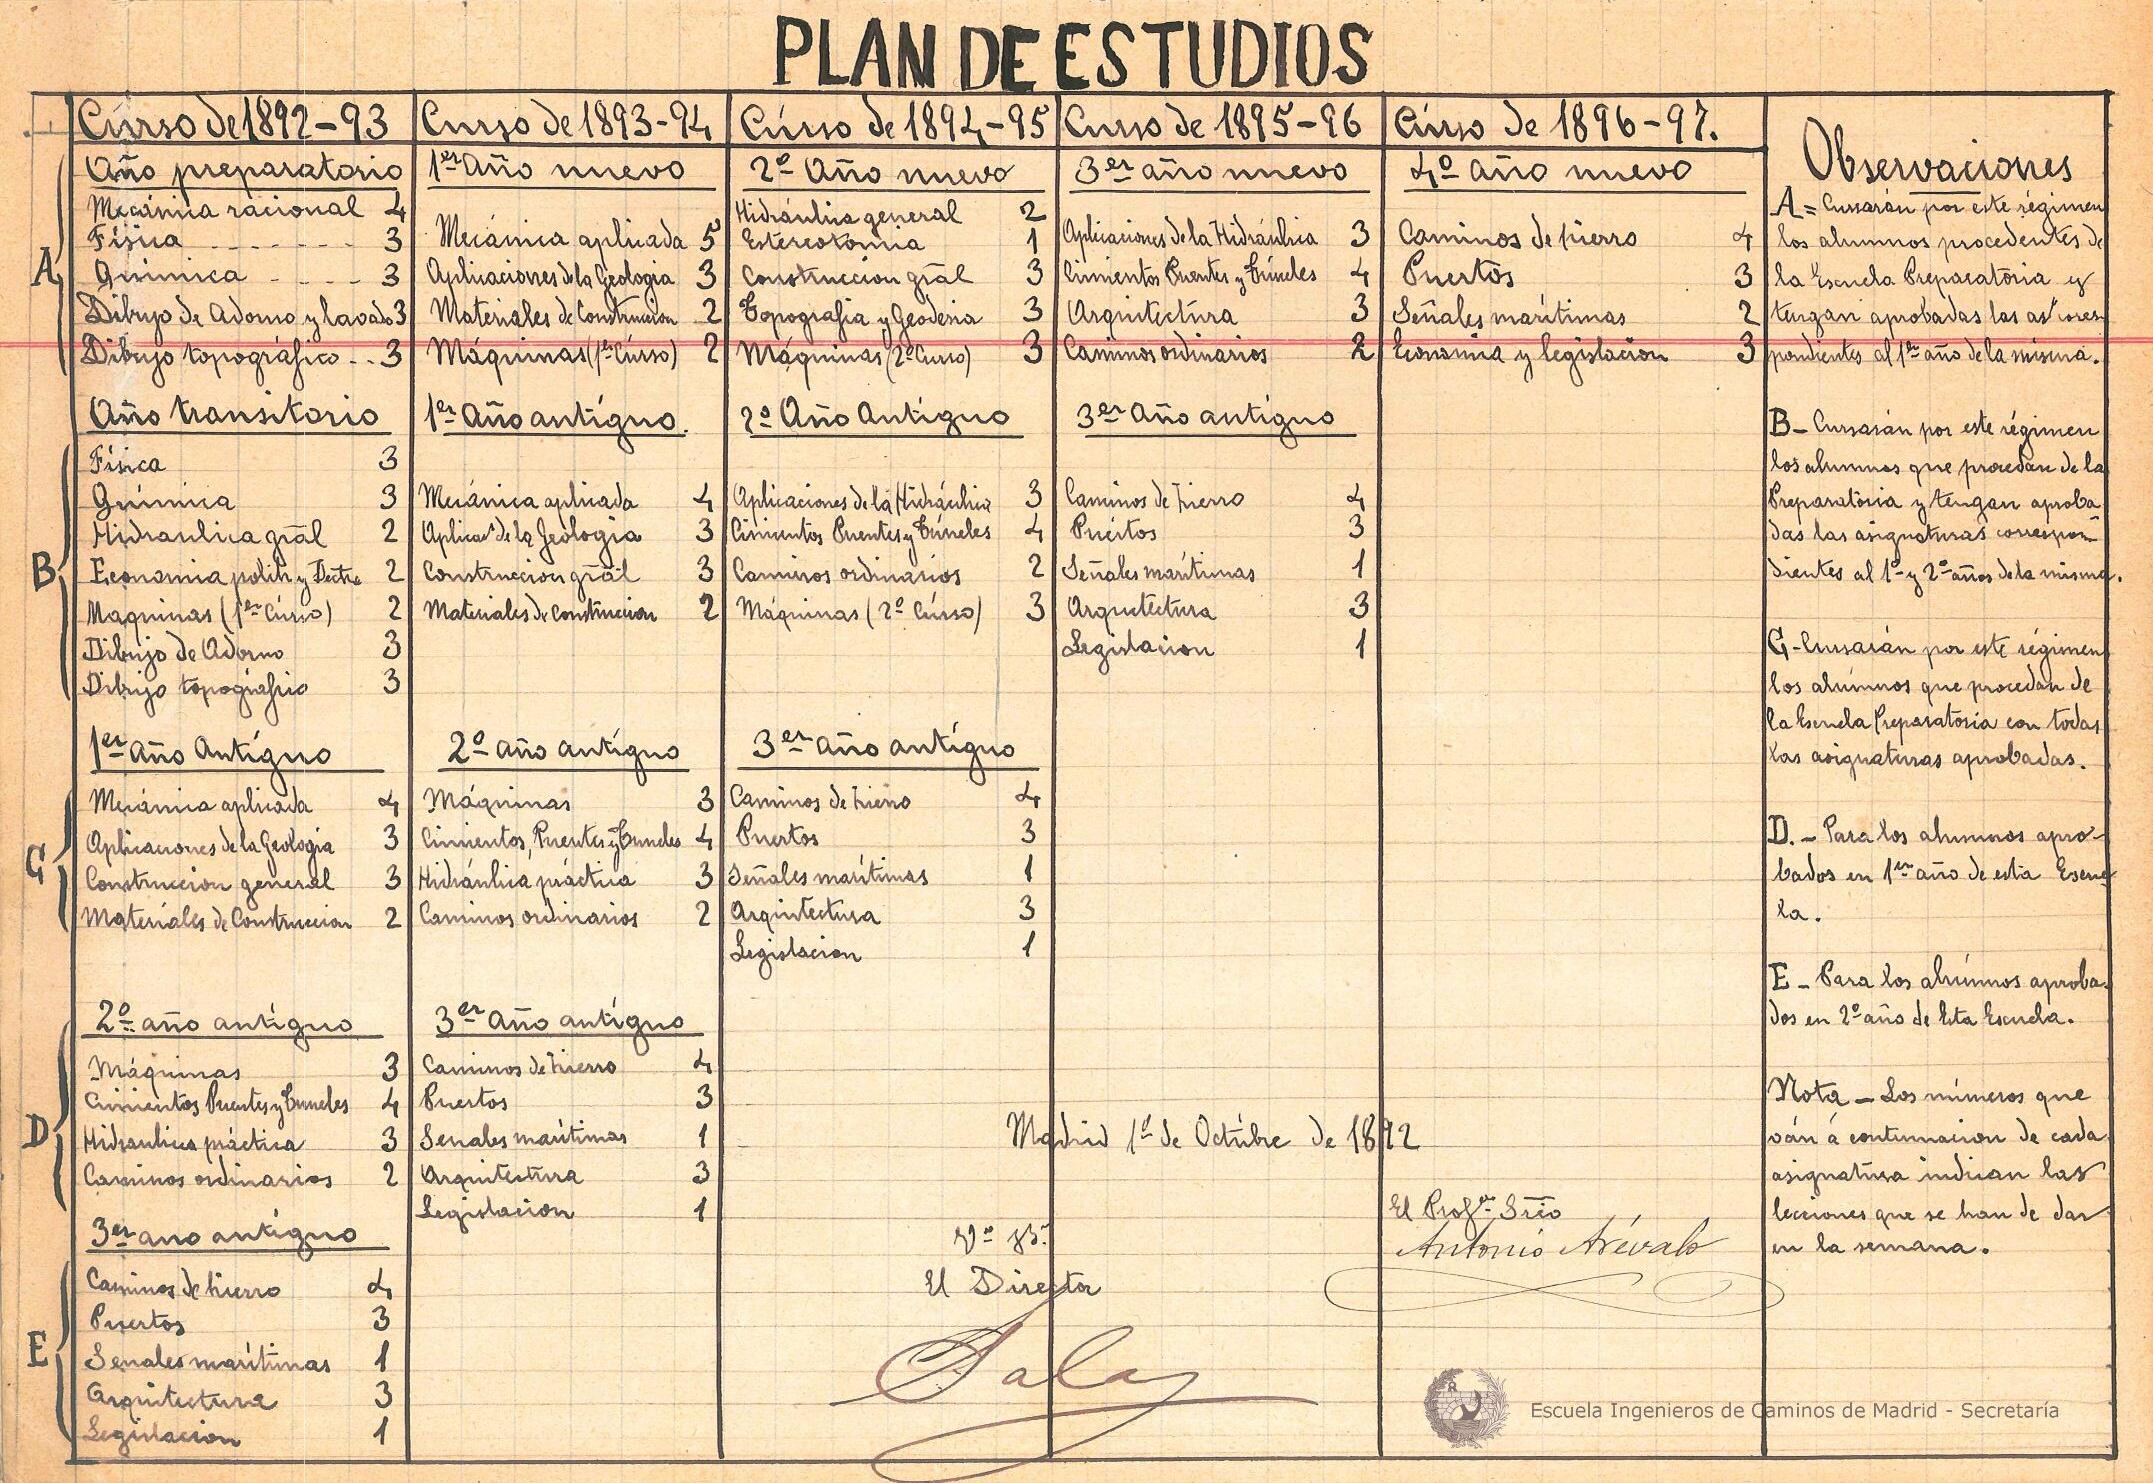 PLAN DE ESTUDIOS
Curso de 1892-93
Curso de 1893-94
Curso de 1894-95
Curso de 1895-96
Curso de 1896-97.
Observaciones
A
Año preparatorio
Mecánica racional 4
Física - - - - - - - 3
Química - - - - 3
Dibujo de Adorno y lavado 3
Dibujo topográfico - - 3
1er Año nuevo
Mecánica aplicada 5
Aplicaciones de la Geologia 3
Materiales de Construccion 2
Máquinas (1er Curso) 2
2º Año nuevo
Hidráulica general 2
Estereotomia 1
Construccion gral 3
Topografia y Geodesia 3
Máquinas (2º Curso) 3
3er año nuevo
Aplicaciones de la Hidráulica 3
Cimientos Puentes y Túneles 4
Arquitectura 3
Caminos ordinarios 2
4º año nuevo
Caminos de hierro 4
Puertos 3
Señales marítimas 2
Economia y legislacion 3
B
Año transitorio
Física 3
Química 3
Hidraulica gral 2
Economia polit y Dcho 2
Maquinas (1er Curso) 2
Dibujo de Adorno 3
Dibujo topográfico 3
1er Año antíguo.
Mecánica aplicada 4
Aplicacs de la Geologia 3
Construccion gral 3
Materiales de Construccion 2
2º Año Antíguo
Aplicaciones de la Hidráulica 3
Cimientos Puentes y Túneles 4
Caminos ordinarios 2
Máquinas (2º Curso) 3
3er Año antíguo
Caminos de hierro 4
Puertos 3
Señales marítimas 1
Arquitectura 3
Legislacion 1
C
1er Año Antíguo
Mecánica aplicada 4
Aplicaciones de la Geologia 3
Construccion general 3
Materiales de Construccion 2
2º año antíguo
Máquinas 3
Cimientos, Puentes y Tuneles 4
Hidráulica práctica 3
Caminos ordinarios 2
3er año antíguo
Caminos de hierro 4
Puertos 3
Señales marítimas 1
Arquitectura 3
Legislacion 1
D
2º año antíguo
Máquinas 3
Cimientos Puentes y Tuneles 4
Hidraulica práctica 3
Caminos ordinarios 2
3er Año antíguo
Caminos de hierro 4
Puertos 3
Senales marítimas 1
Arquitectura 3
Legislacion 1
E
3er ano antíguo
Caminos de hierro 4
Puertos 3
Senales marítimas 1
Arquitectura 3
Legislacion 1
A = Cursarán por este régimen
los alumnos procedentes de
la Escuela Preparatoria y
tengan aprobadas las as corres
pondientes al 1er año de la misma.
B - Cursarán por este régimen
los alumnos que procedan de la
Preparatoria y tengan aproba
das las asignaturas correspon
dientes al 1º y 2º años de la misma.
C - Cursarán por este régimen
los alumnos que procedan de
la Escuela Preparatoria con todas
las asignaturas aprobadas.
D. - Para los alumnos apro-
bados en 1er año de esta Escue
la.
E - Para los alumnos aproba-
dos en 2º año de Esta Escuela.
Nota - Los números que
ván á continuacion de cada
asignatura indican las
lecciones que se han de dar
en la semana.
Madrid 1º de Octubre de 1892
El Profor Srio
Antonio Arévalo
Vº Bº
El Director
Salas
Escuela Ingenieros de Caminos de Madrid - Secretaría